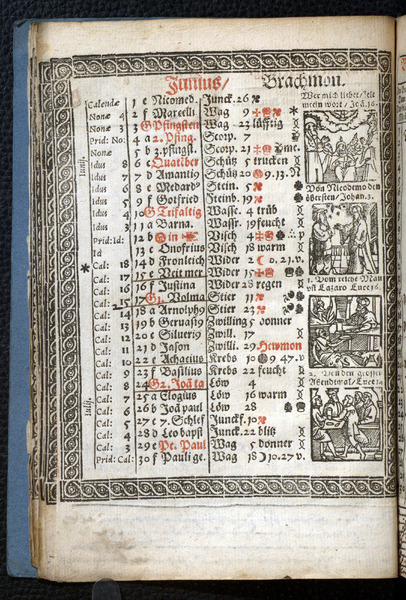 Junius/ Brachmon.
Calendæ 1 e Nicomed. Junck. 26
Nonæ 4 2 f Marcelli Wag 9
Nonæ 3 3 G Pfingsten Wag 23 lüfftig
Prid: No: 4 a 2. Pfing. Scorp. 7
Nonæ 5 b 3. pfingst. Scorp. 21
Idus 8 6 c Quatiber Schütz 5 trucken
Idus 7 7 d Amantij Schütz 20 9. 13. N
Idus 6 8 e Medard⁹ Stein. 5
Idus 5 9 f Gotfried Steinb. 19
Idus 4 10 G Trifaltig Wasse. 4 trüb
Idus 3 11 a Barna. Wasse. 19 feucht
Prid: Id: 12 b Visch 4
Id 13 c Onofrius Visch 18 warm
Cal: 18 14 d Fronleich Wider 2 0. 21. v.
Cal: 17 15 e Veit mer. Wider 15
Cal: 16 16 f Justina Wider 28 regen
Cal: 15 17 G Stier 11
Cal: 14 18 a Arnolph⁹ Stier 23
Cal: 13 19 b Gervasi⁹ Zwilling 5 donner
Cal: 12 20 c Silverij Zwill. 17
Cal: 11 21 d Jason Zwill. 29 Hewmon
Cal: 10 22 e Achacius Krebs 10 9 47. v
Cal: 9 23 f Basilius Krebs 22 feucht
Cal: 8 24 G Löw 4
Cal: 7 25 a Elogius Löw 16 warm
Cal: 6 26 b Joā paul Löw 28
Cal: 5 27 c 7. Schlef Junckf. 10
Cal: 4 28 d Leo bapst Junck. 22 blitz
Cal: 3 29 e Pe. Paul Wag 5 donner
Prid: Cal: 30 f Pauli ge. Wag 18 10. 27 v.
Junij.
Julij.
Wer mich liebet/ helt
mein wort/ Joā. 16.
Von Nicodemo den
öbersten/ Johan. 3.
1. Vom reiche Man
vñ Lazaro Luce 16.
2. Von dem grossen
Abendmal/ Luce 14